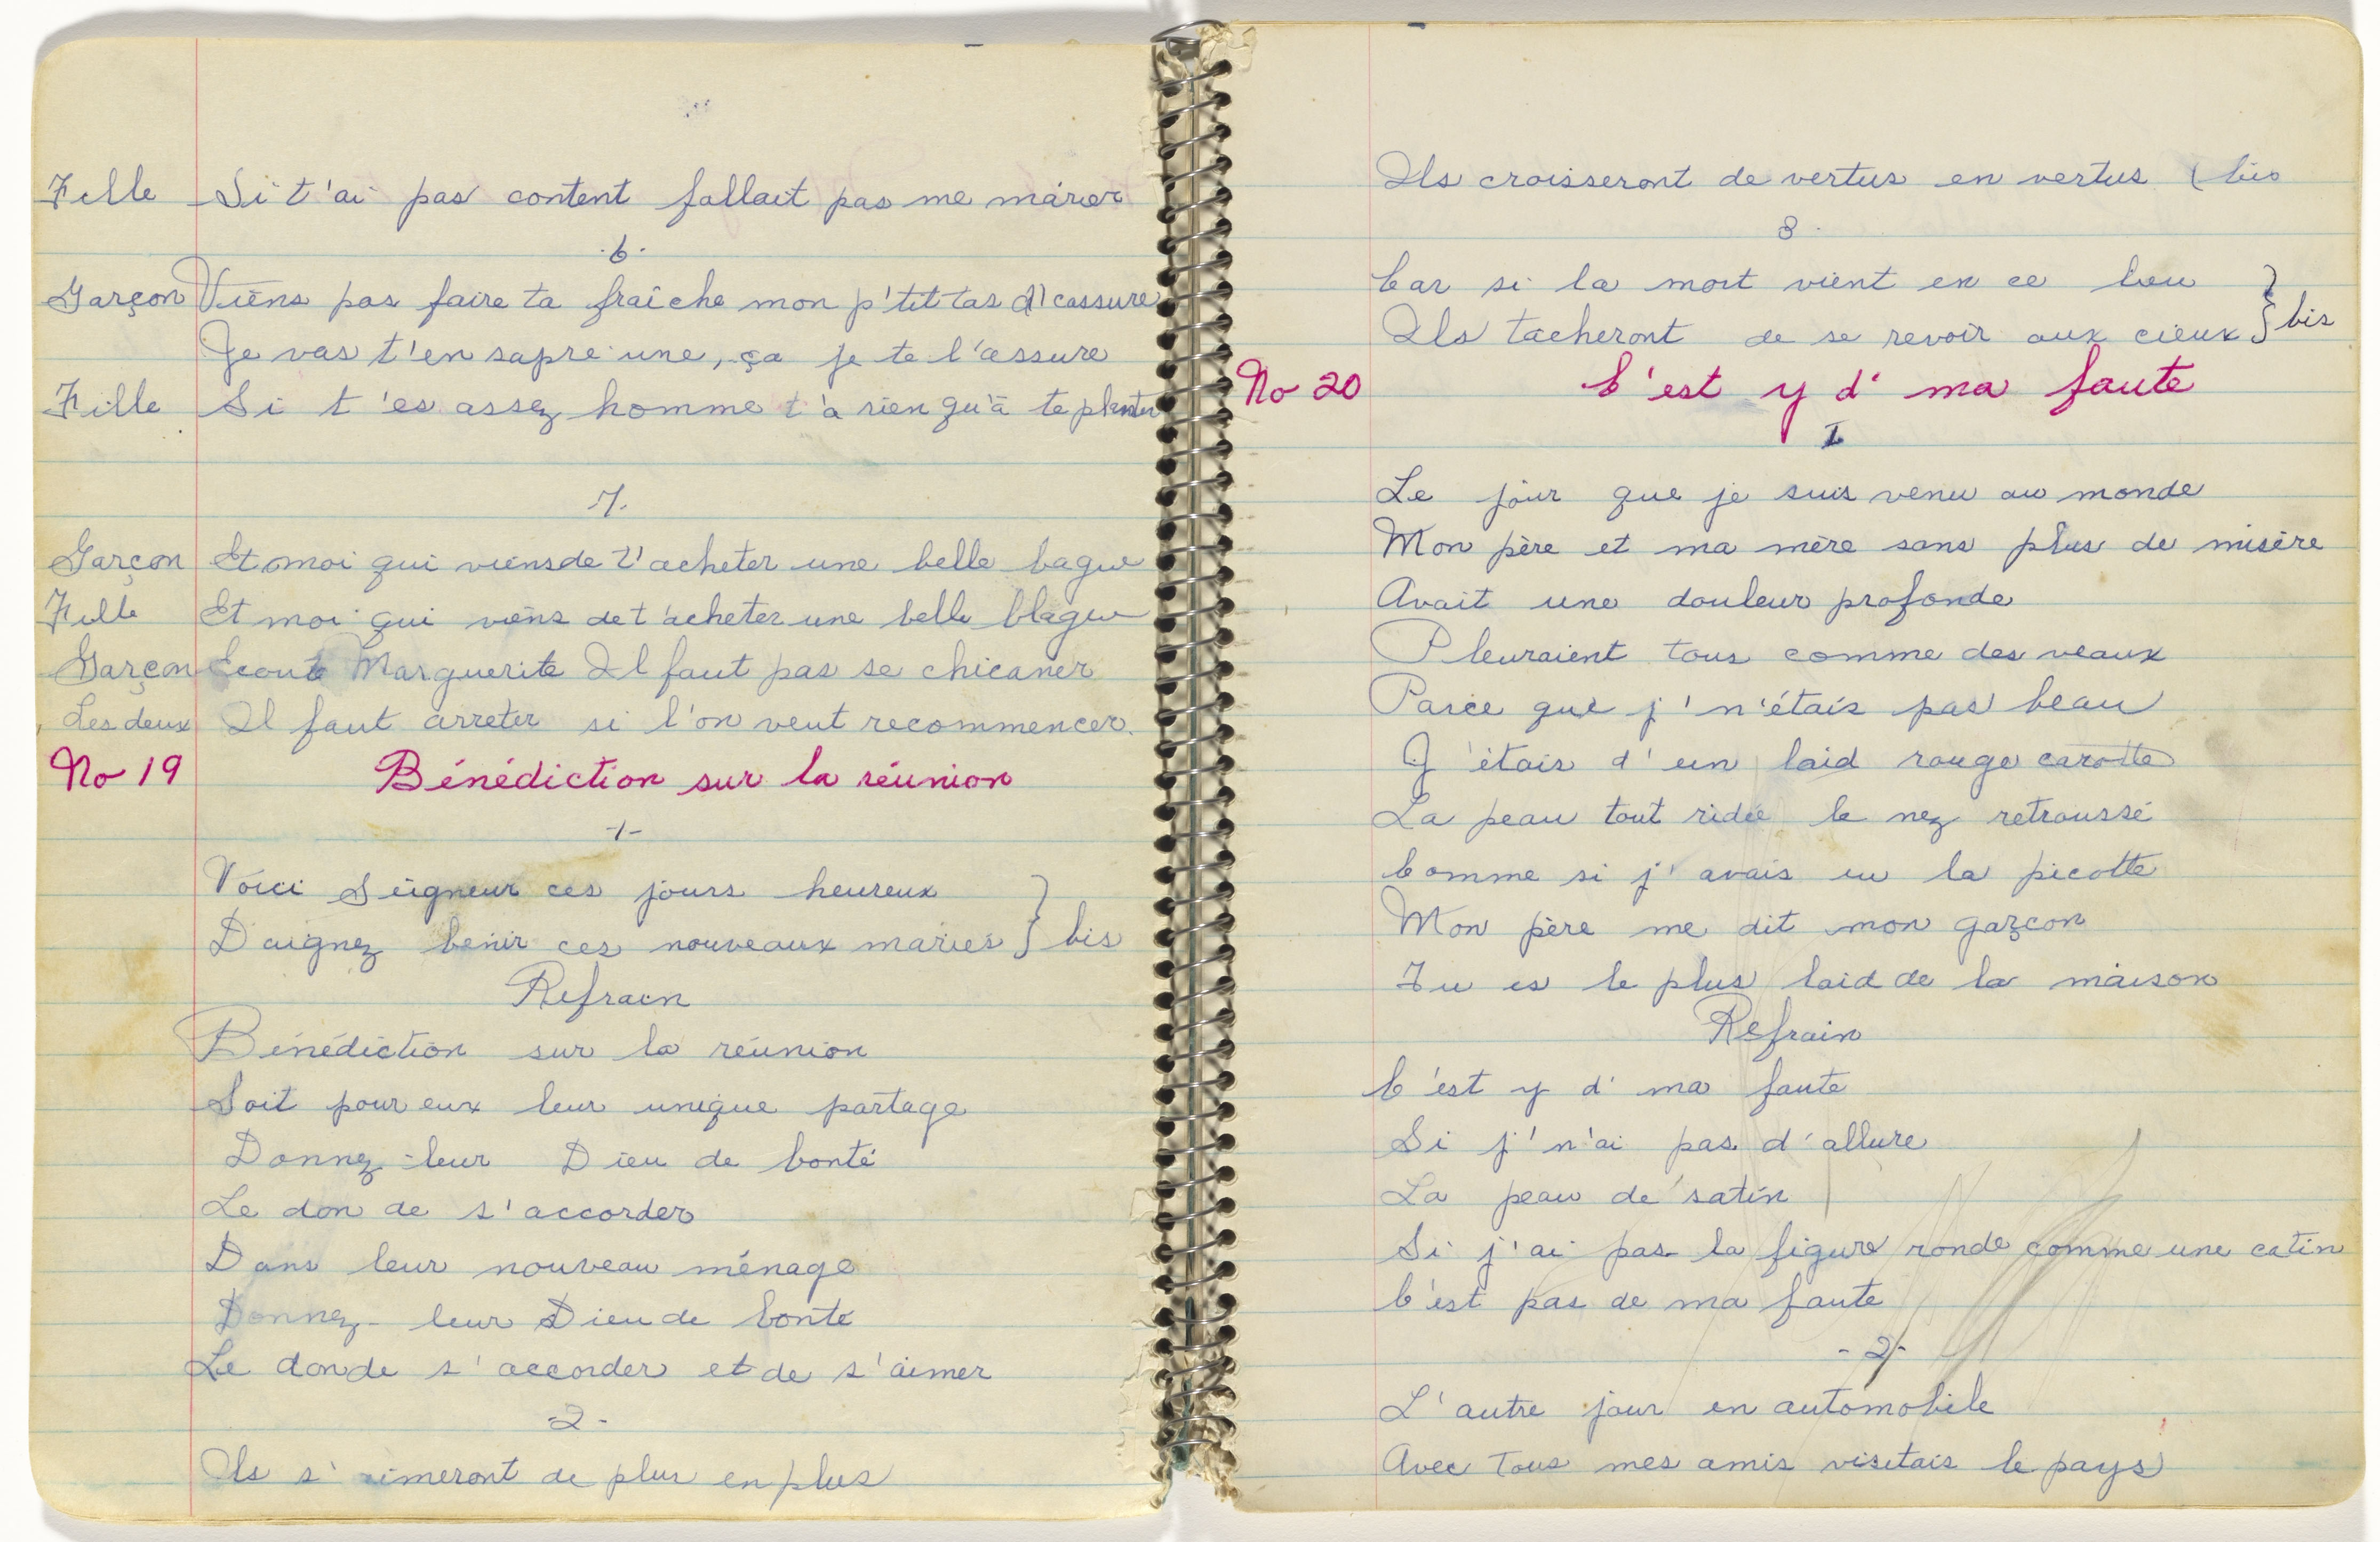 Fille Si t'ai pas content fallait pas me marier
.6.
Garçon Viens pas faire ta fraîche mon p'tit tas d'cassure
Je vas t'en sapre une, ça je te l'assure
Fille Si t'es assez homme t'a rien qu'à te planter
7.
Garçon Et moi qui viens de t'acheter une belle bague
Fille Et moi qui viens de t'acheter une belle blague
Garçon Ecoute Marguerite Il faut pas se chicaner
Les deux Il faut arreter si l'on veut recommencer.
No 19 Bénédiction sur la réunion
-1-
Voici Seigneur ces jours heureux
Daignez benir ces nouveaux mariés } bis
Refrain
Bénédiction sur la réunion
Soit pour eux leur unique partage
Donnez-leur Dieu de bonté
Le don de s'accorder
Dans leur nouveau ménage
Donnez-leur Dieu de bonté
Le don de s'accorder et de s'aimer
-2-
Ils s'aimeront de plus en plus
Ils croisseront de vertus en vertus ( bis
3.
Car si la mort vient en ce lieu
Ils tacheront de se revoir aux cieux } bis
No 20 C'est y d' ma faute
I
Le jour que je suis venu au monde
Mon père et ma mère sans plus de misère
Avait une douleur profonde
Pleuraient tous comme des veaux
Parce que j'n'étais pas beau
J'étais d'un laid rouge carotte
La peau tout ridée le nez retroussé
Comme si j'avais eu la picotte
Mon père me dit mon garçon
Tu es le plus laid de la maison
Refrain
C'est y d' ma faute
Si j'n'ai pas d'allure
La peau de satin
Si j'ai pas la figure ronde comme une catin
C'est pas de ma faute
-2-
L'autre jour en automobile
Avec tous mes amis visitais le pays